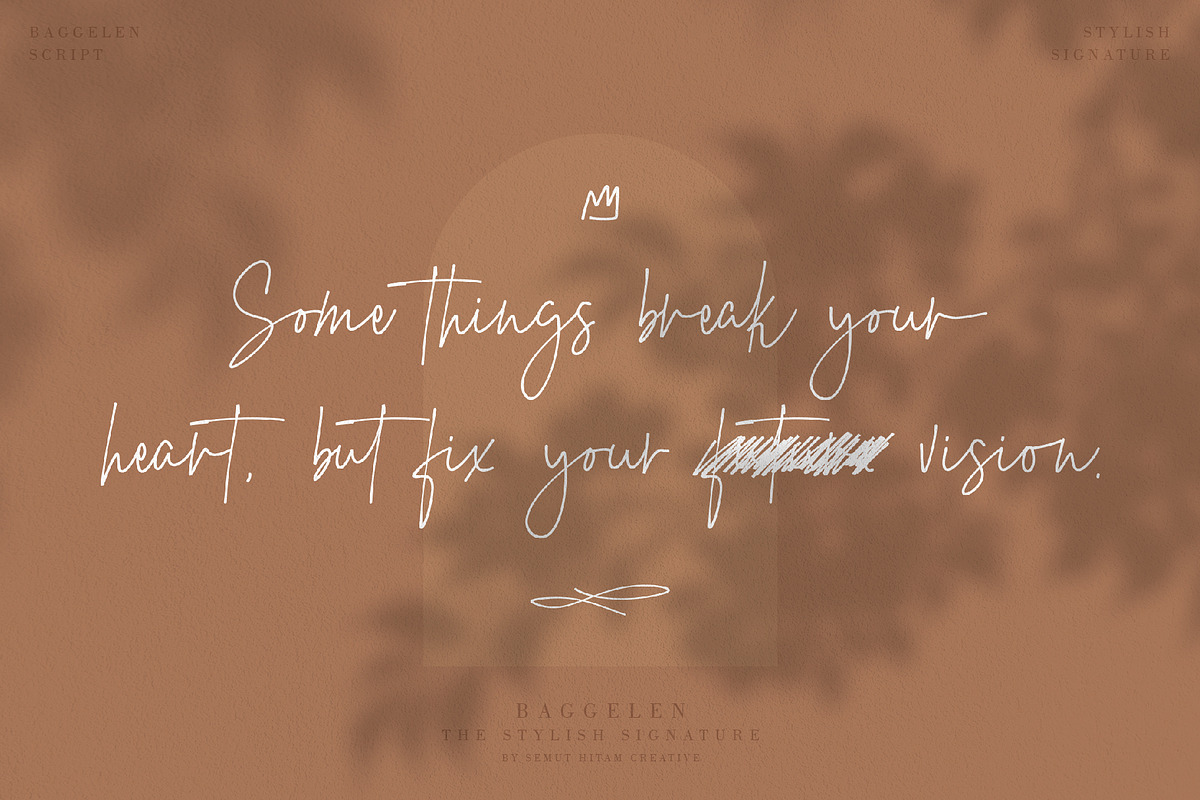 BAGGELEN
SCRIPT
STYLISH
SIGNATURE
Some things break your
heart, but fix your vision.
BAGGELEN
THE STYLISH SIGNATURE
BY SEMUT HITAM CREATIVE